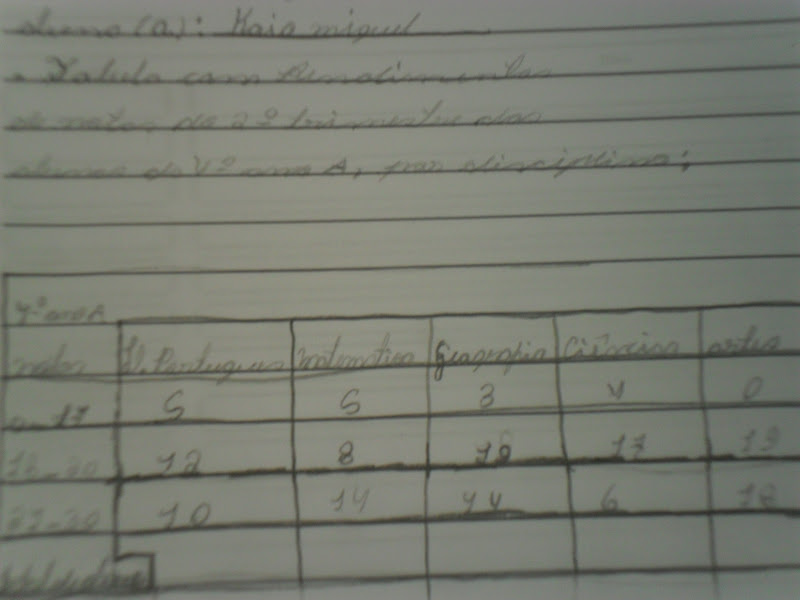 aluno(a): Kaio miguel
Tabela com Rendimentos
de notas do 2º trimestre dos
alunos do 4º ano A, por disciplina;
4º ano A
notas L. Portuguesa matematica geografia Ciências artes
0-17 5 5 3 4 0
12 8 17 13
10 14 14 6 18